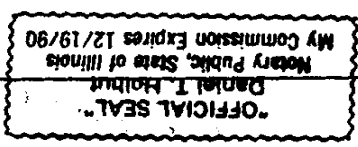 "OFFICIAL SEAL"
Daniel T.
Notary Public, State of Illinois
My Commission Expires 12/19/90